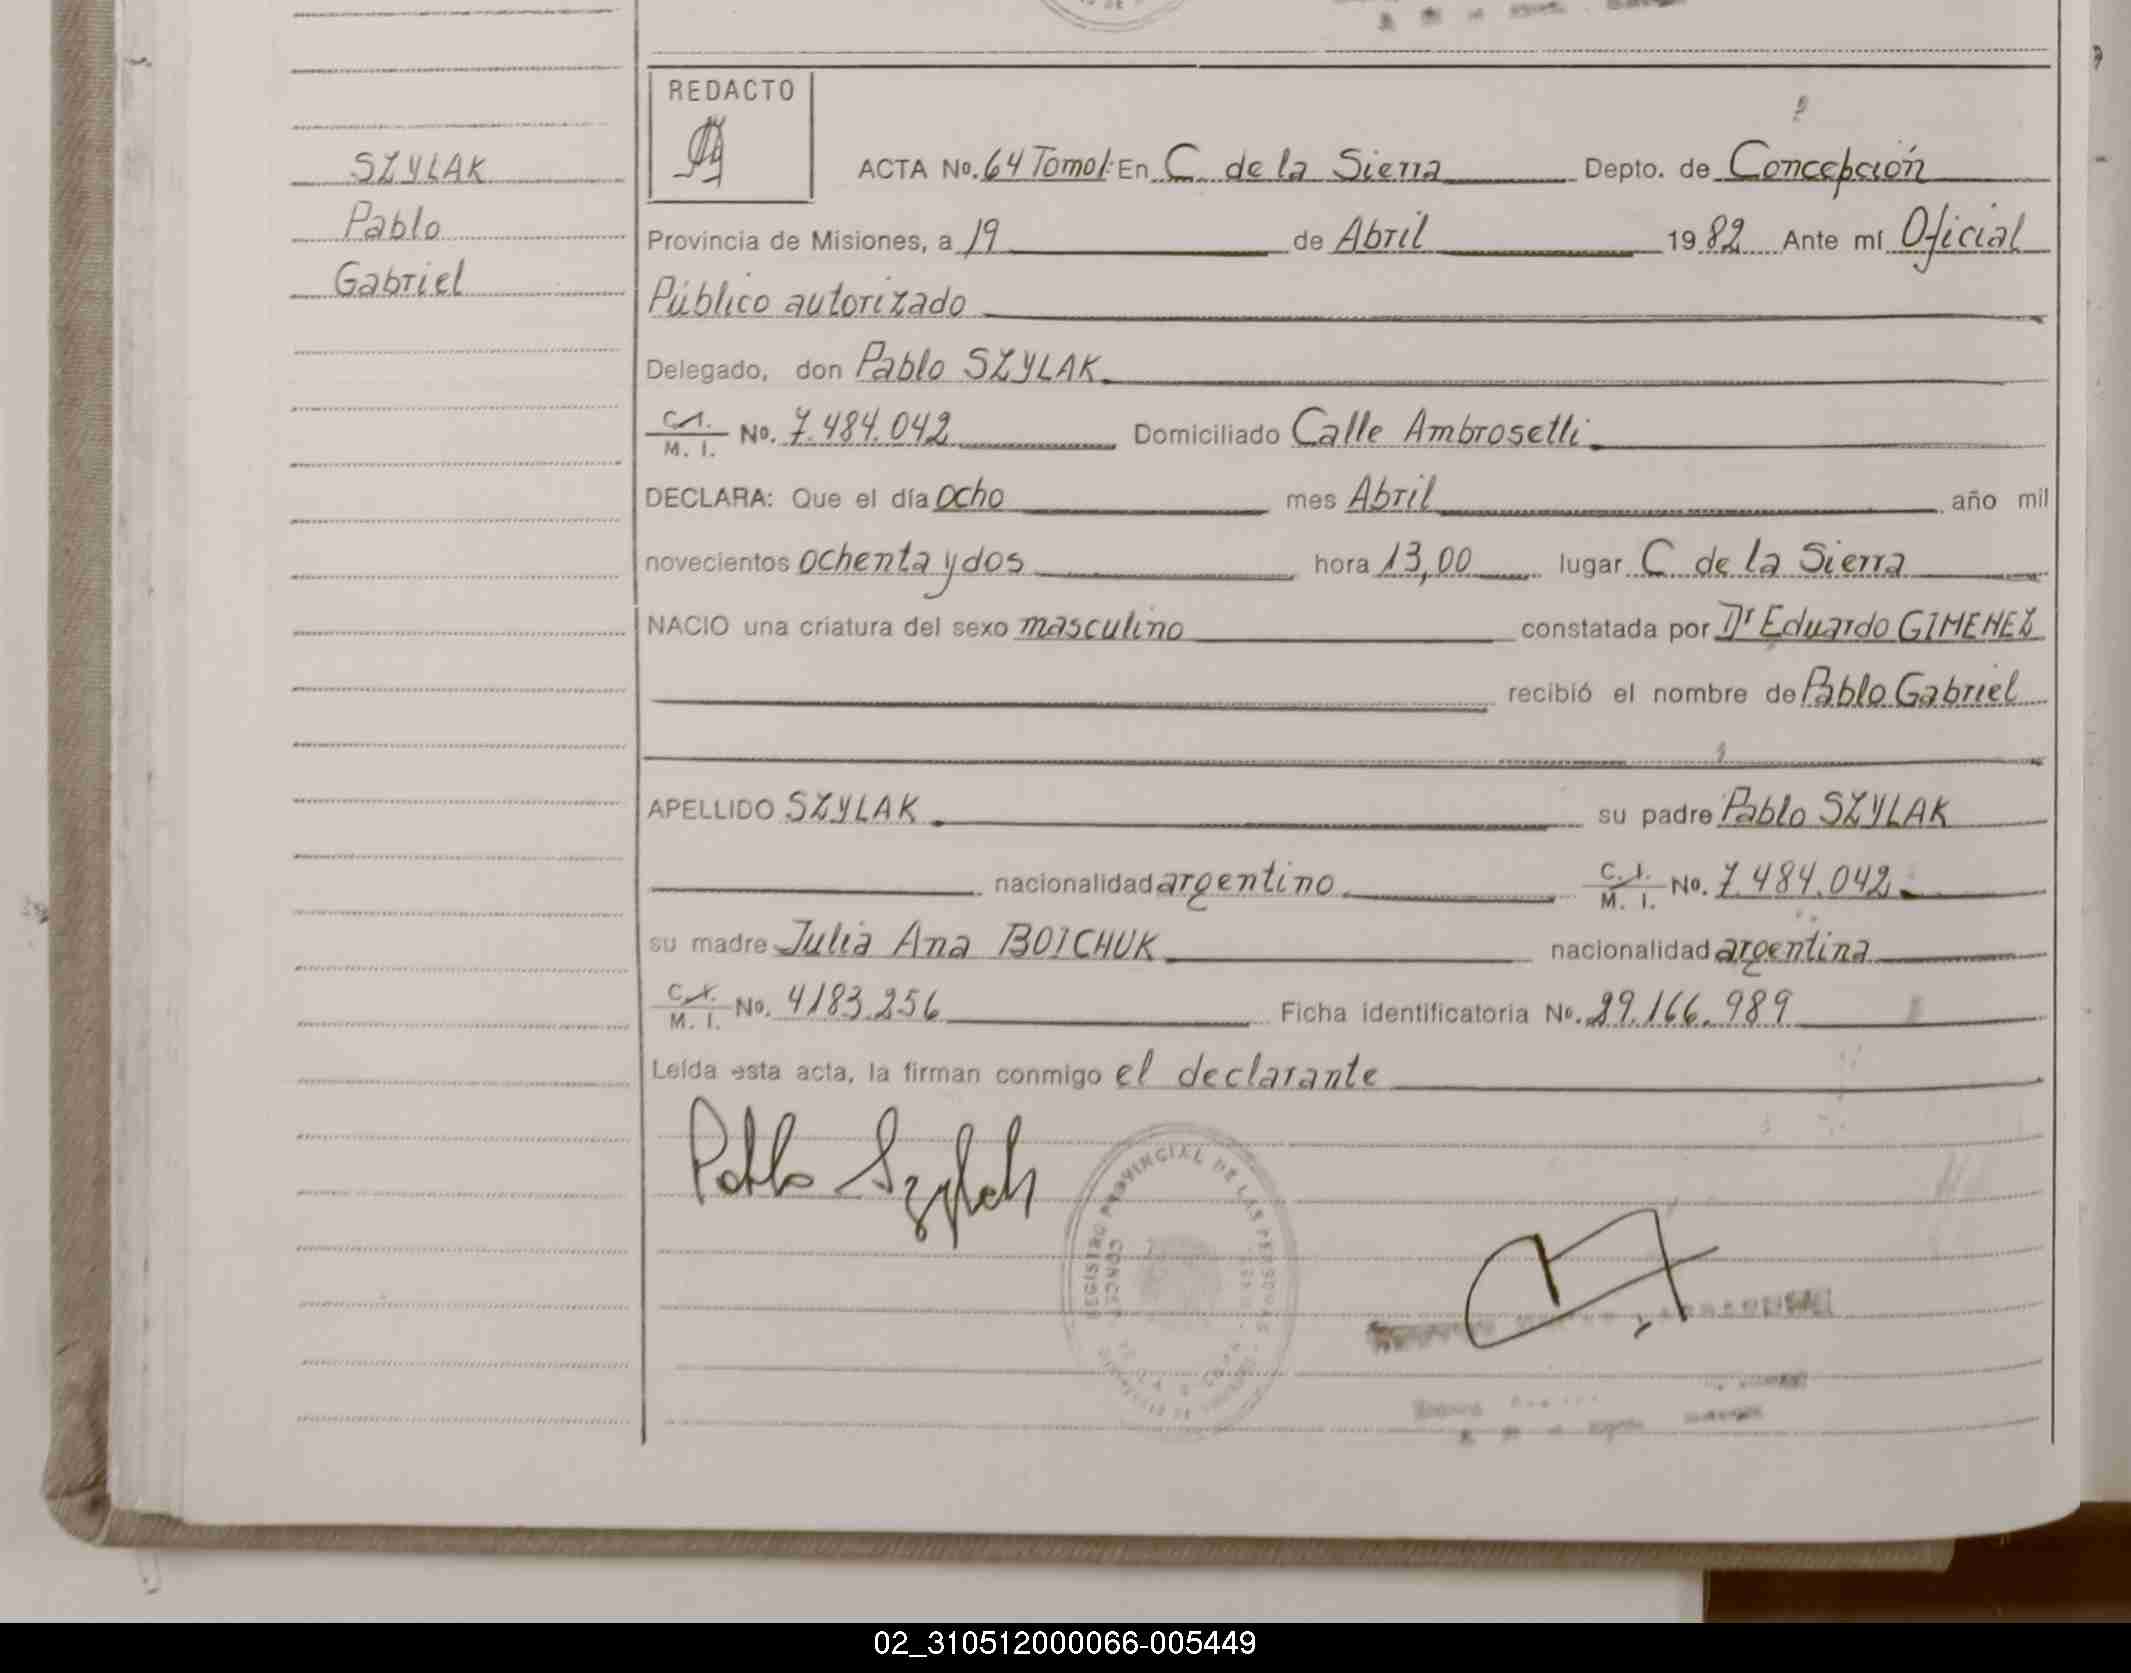 REDACTO
SZYLAK
Pablo
Gabriel
ACTA No. 64 Tomo I. En C. de la Sierra Depto. de Concepción
Provincia de Misiones, a 19 de Abril 1982 Ante mí Oficial
Público autorizado
Delegado, don Pablo SZYLAK
C.I. M. I. No. 7.484.042 Domiciliado Calle Ambrosetti
DECLARA: Que el día ocho mes Abril año mil
novecientos ochenta y dos hora 13,00 lugar C. de la Sierra
NACIO una criatura del sexo masculino constatada por Dr Eduardo GIMENEZ
recibió el nombre de Pablo Gabriel
APELLIDO SZYLAK su padre Pablo SZYLAK
nacionalidad argentino C. I. M. I. No. 7.484.042
su madre Julia Ana BOICHUK nacionalidad argentina
C.I. M. I. No. 4183.256 Ficha identificatoria No. 29.166.989
Leída esta acta, la firman conmigo el declarante
Pablo Szylak
REGISTRO PROVINCIAL DE LAS PERSONAS
02_310512000066-005449